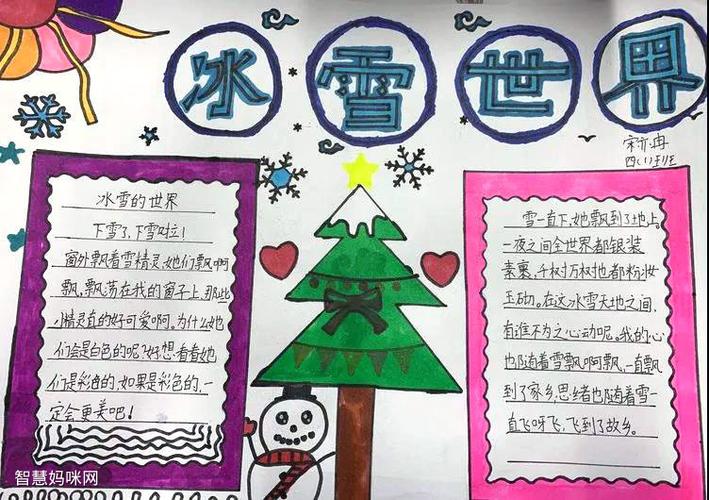 冰雪世界
四(1)班
冰雪的世界
下雪了,下雪啦!
窗外飘着雪精灵,她们飘啊
飘,飘落在我的窗子上,那些
小精灵真的好可爱啊。为什么她
们会是白色的呢?好想看看她
们是彩色的,如果是彩色的,一
定会更美吧!
雪一直下,她飘到了地上。
一夜之间全世界都银装
素裹,千树万树也都粉妆
玉砌。在这冰雪天地之间,
有谁不为之心动呢。我的心
也随着雪飘啊飘,一直飘
到了家乡,思绪也随着雪一
直飞呀飞,飞到了故乡。
智慧妈咪网